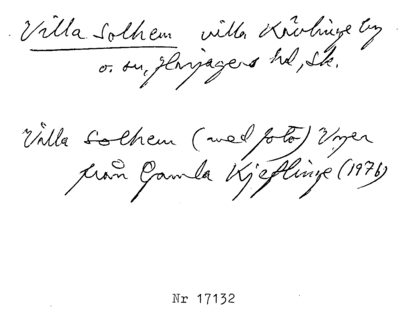 Villa Solhem villa Kävlinge by
o. sn, Harjagers hd, Sk.
Villa Solhem (med foto) Vyer
från Gamla Kjeflinge (1976)
Nr 17132